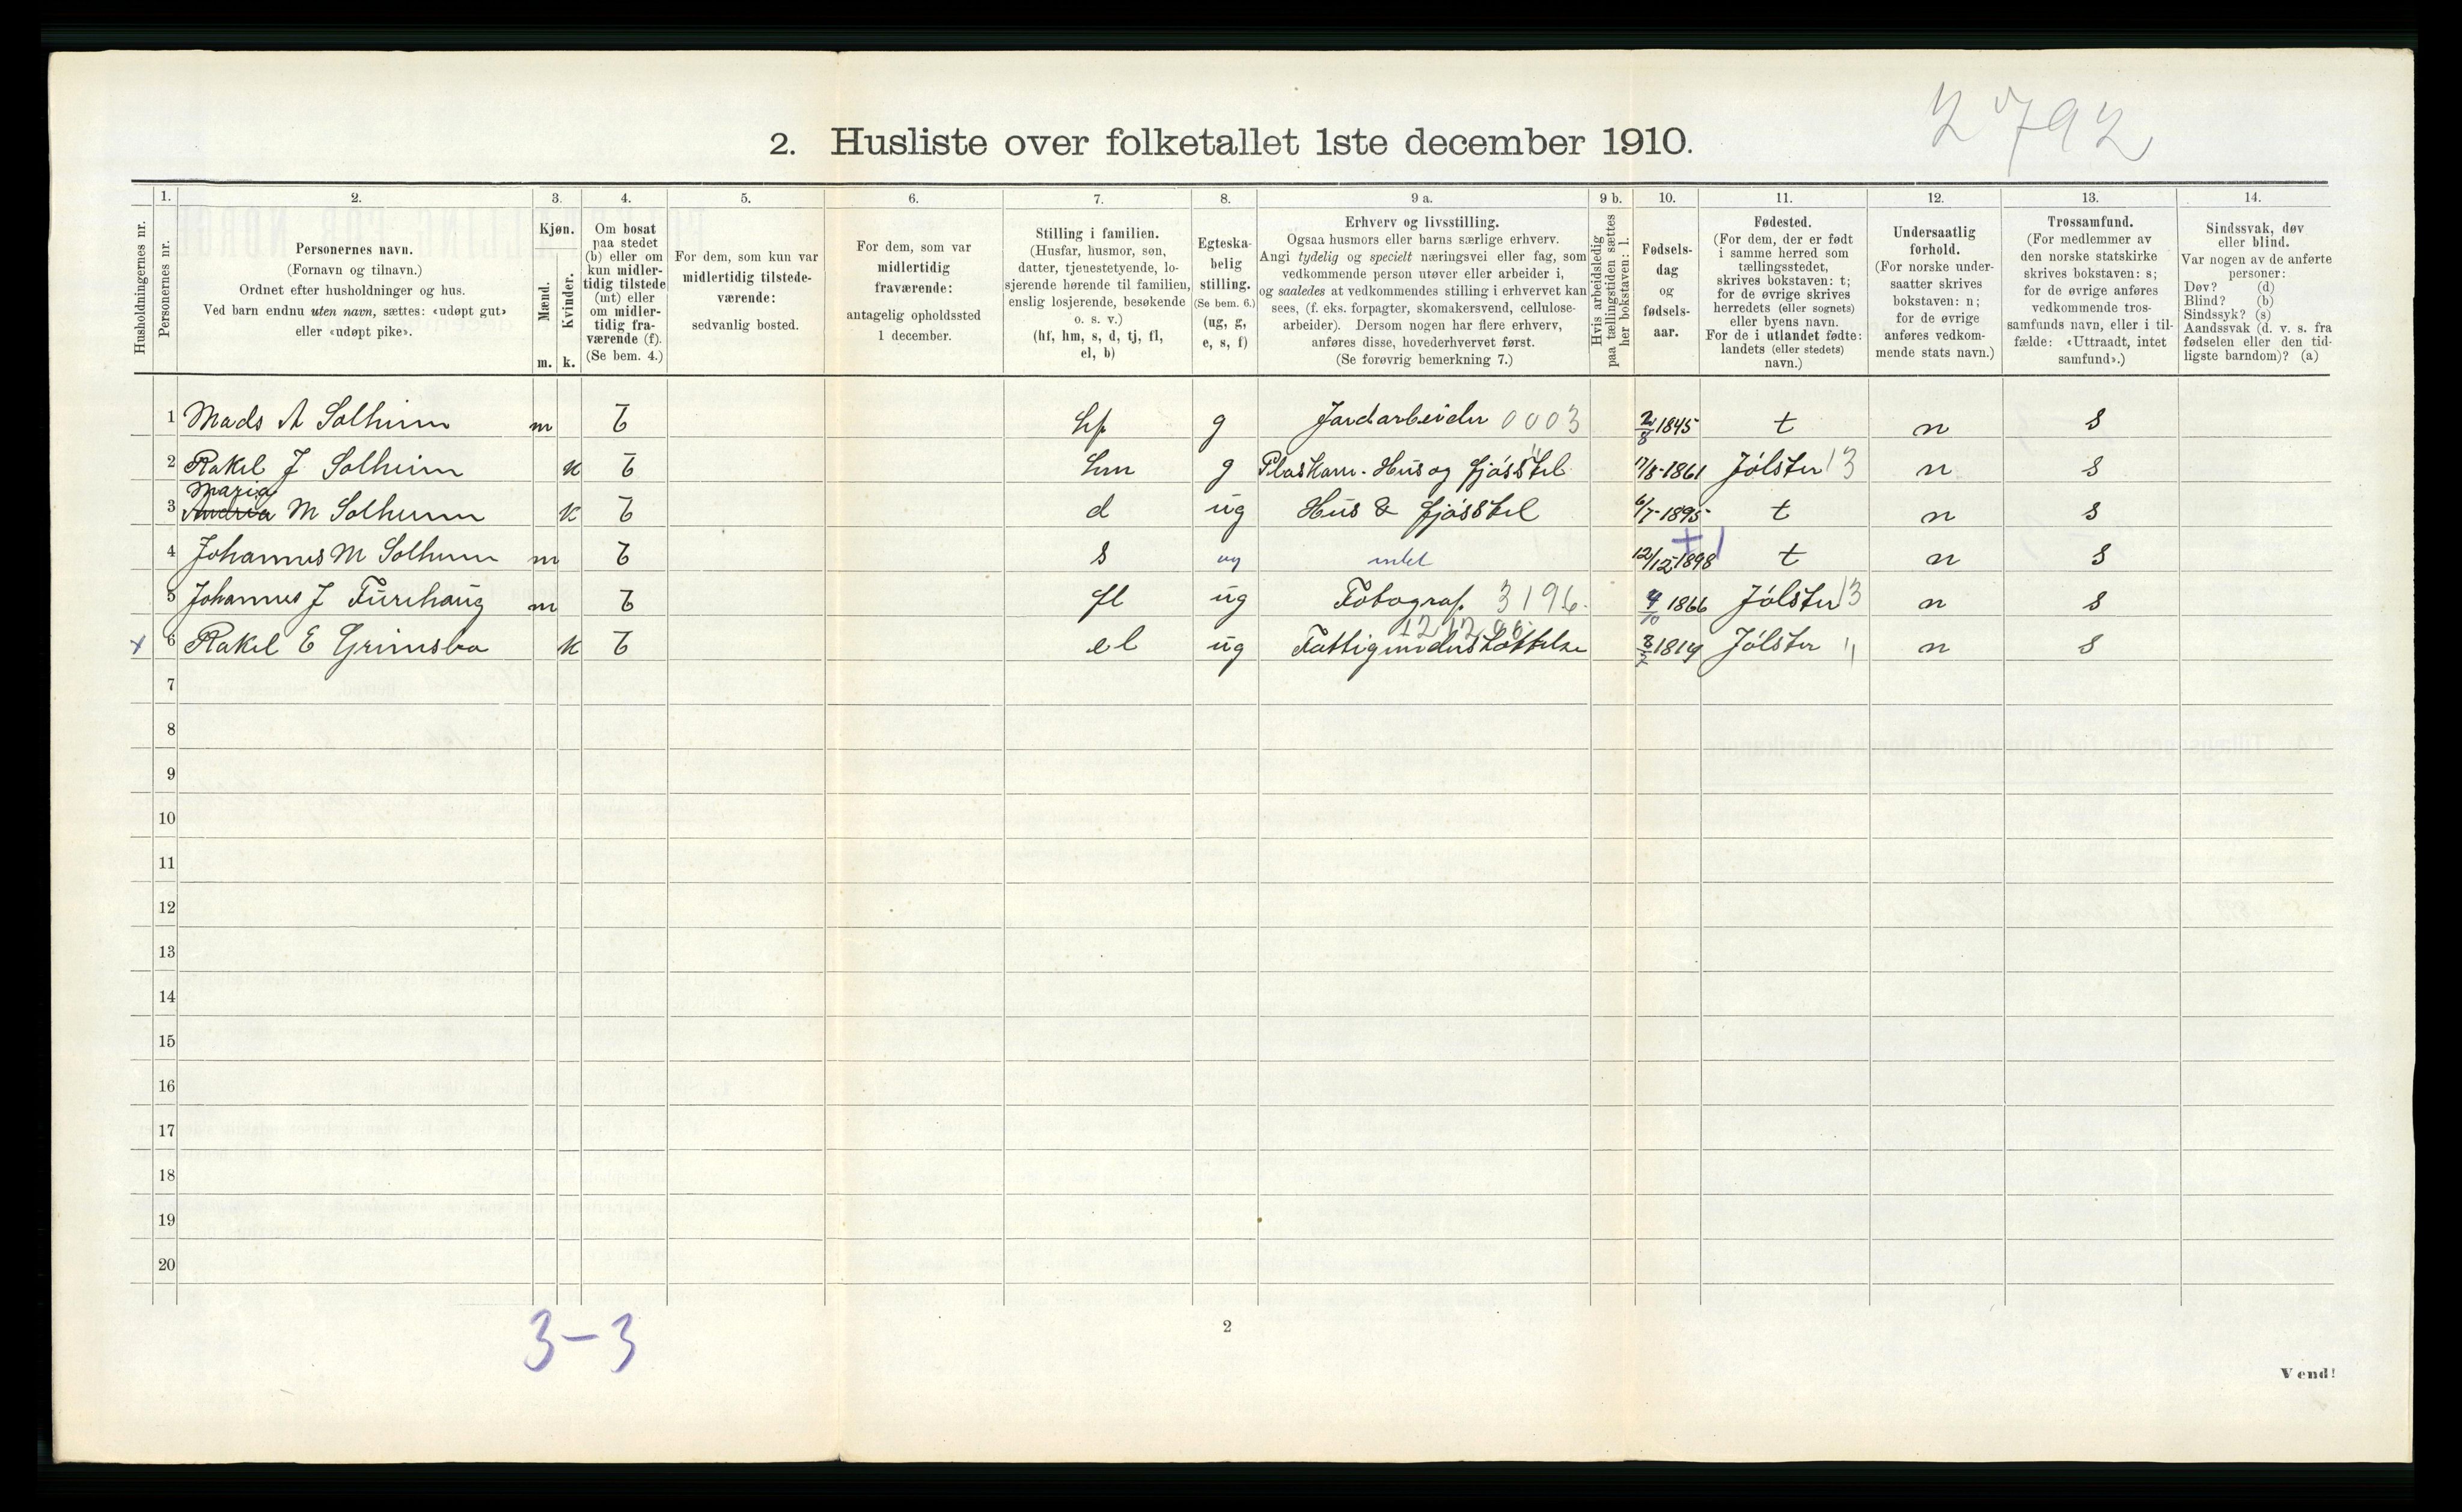 2792
2. Husliste over folketallet 1ste december 1910.
Husholdningernes nr.
1. Personernes nr.
2. Personernes navn. (Fornavn og tilnavn.) Ordnet efter husholdninger og hus. Ved barn endnu uten navn, sættes: «udøpt gut» eller «udøpt pike».
3. Kjøn. Mænd. m. Kvinder. k.
4. Om bosat paa stedet (b) eller om kun midlertidig tilstede (mt) eller om midlertidig fraværende (f). (Se bem. 4.)
5. For dem, som kun var midlertidig tilstedeværende: sedvanlig bosted.
6. For dem, som var midlertidig fraværende: antagelig opholdssted 1 december.
7. Stilling i familien. (Husfar, husmor, søn, datter, tjenestetyende, losjerende hørende til familien, enslig losjerende, besøkende o. s. v.) (hf, hm, s, d, tj, fl, el, b)
8. Egteskabelig stilling. (Se bem. 6.) (ug, g, e, s, f)
9 a. Erhverv og livsstilling. Ogsaa husmors eller barns særlige erhverv. Angi tydelig og specielt næringsvei eller fag, som vedkommende person utøver eller arbeider i, og saaledes at vedkommendes stilling i erhvervet kan sees, (f. eks. forpagter, skomakersvend, cellulosearbeider). Dersom nogen har flere erhverv, anføres disse, hovederhvervet først. (Se forøvrig bemerkning 7.)
9 b. Hvis arbeidsledig paa tællingstiden sættes her bokstaven: l.
10. Fødselsdag og fødselsaar.
11. Fødested. (For dem, der er født i samme herred som tællingsstedet, skrives bokstaven: t; for de øvrige skrives herredets (eller sognets) eller byens navn. For de i utlandet fødte: landets (eller stedets) navn.)
12. Undersaatlig forhold. (For norske undersaatter skrives bokstaven: n; for de øvrige anføres vedkommende stats navn.)
13. Trossamfund. (For medlemmer av den norske statskirke skrives bokstaven: s; for de øvrige anføres vedkommende trossamfunds navn, eller i tilfælde: «Uttraadt, intet samfund».)
14. Sindssvak, døv eller blind. Var nogen av de anførte personer: Døv? (d) Blind? (b) Sindssyk? (s) Aandssvak (d. v. s. fra fødselen eller den tidligste barndom)? (a)
1 Mads A Solheim m b hf g Jordarbeider 0003 2/8 1845 t n s
2 Rakel J Solheim k b hm g Plaskam. Hus og fjósstel 17/8-1861 Jölster 13 n s
Maria
3 Andrea M Solheim k b d ug Hus & fjósstel 6/7-1895 t n s
4 Johannes M Solheim m b s ug intet 12/12 1898 t n s
5 Johannes J Furehaug m b fl ug Fotograf 3196 4/10 1866 Jölster 13 n s
x 6 Rakel E Grimsbo k b el ug Fattigunderstøttelse 1819 Jölster " n s
7
8
9
10
11
12
13
14
15
16
17
18
19
20
3-3
2
Vend!